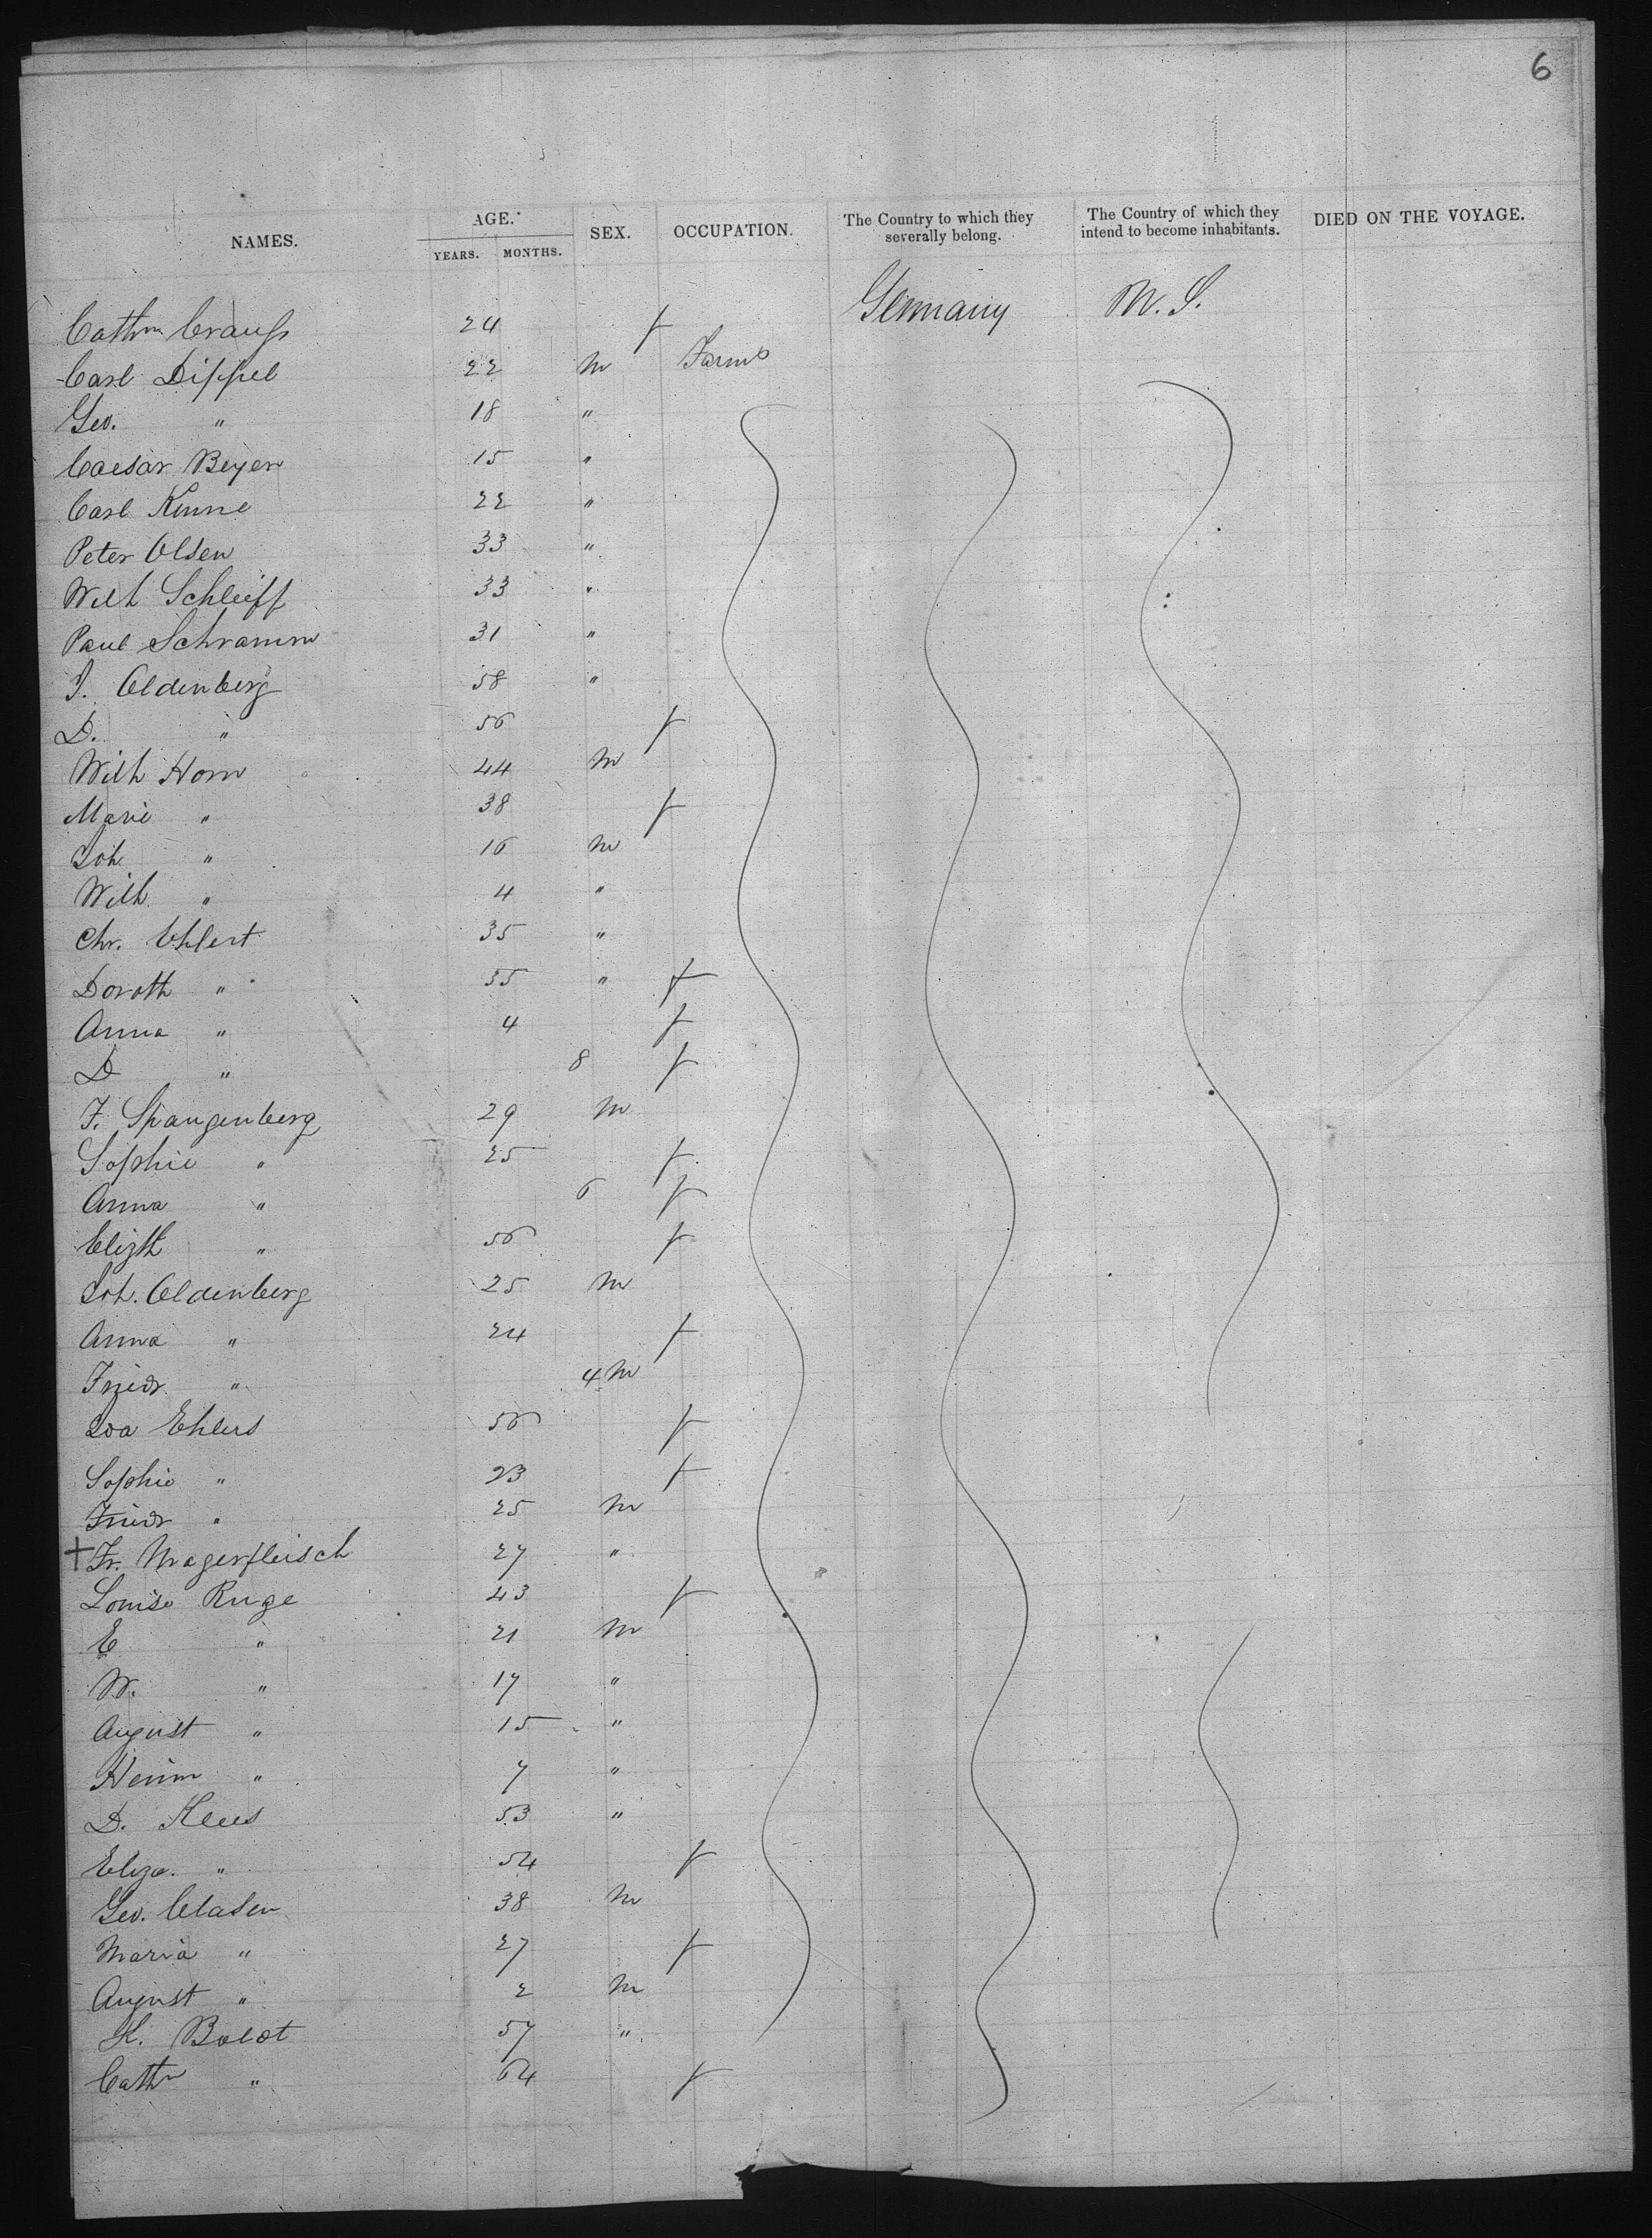 6
NAMES. AGE. YEARS. MONTHS. SEX. OCCUPATION. The Country to which they severally belong. The Country of which they intend to become inhabitants. DIED ON THE VOYAGE.
Cathn Crauss 24 f Germany U. S.
Carl Dippel 22 m Farmr
Geo. " 18 "
Caesar Beyer 15 "
Carl Kunne 22 "
Peter Olsen 33 "
Wilh Schleiff 33 "
Paul Schramm 31 "
J. Oldenberg 58 "
D. " 56 f
Wilh Horn 44 m
Marie " 38 f
Joh " 16 m
Wilh " 4 "
Chr. Ehlert 35 "
Doroth " 35 " f
Anna " 4 f
D " 8 f
F. Spangenberg 29 m
Sophie " 25 f
Anna " 6 f
Elizth " 56 f
Joh. Oldenberg 25 m
Anna " 24 f
Friedr " 4 m
Ehlers 56 f
Sophie " 23 f
Friedr " 25 m
+ Fr. Magerfleisch 27 "
Louise Ruge 43 f
E " 21 m
W. " 17 "
August " 15 "
Heinr " 7 "
D. Klees 53 "
Eliza. " 54 f
Geo. Clasen 38 m
Maria " 27 f
August " 2 m
H. Boldt 57 "
Cathn " 64 f